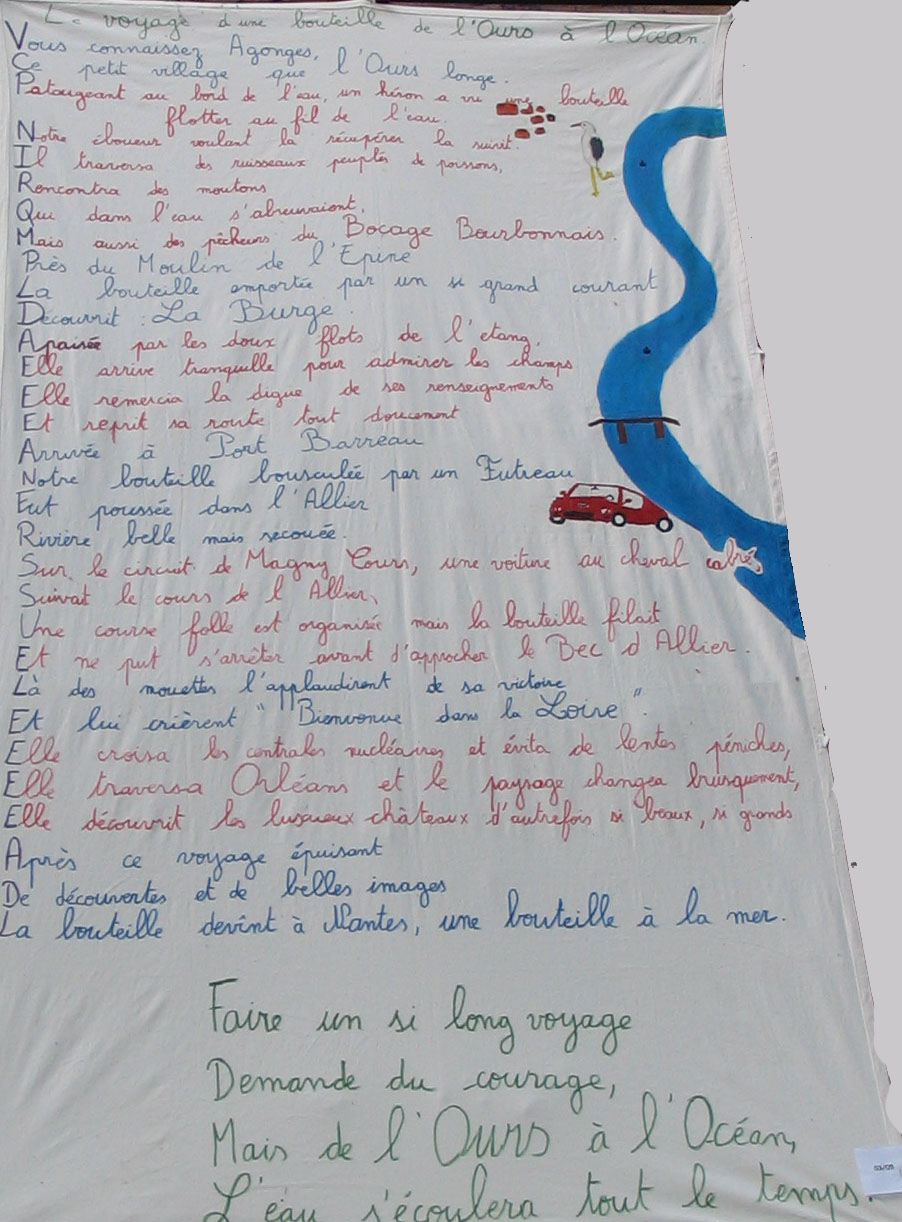 Le voyage d'une bouteille de l'Ours à l'Océan.
Vous connaissez Agonges,
Ce petit village que l'Ours longe.
Patougeant au bord de l'eau, un héron a vu une bouteille
flotter au fil de l'eau.
Notre éboueur voulant la récupérer la suivit.
Il traversa des ruisseaux peuplés de poissons,
Rencontra des moutons
Qui dans l'eau s'abreuvaient,
Mais aussi des pêcheurs du Bocage Bourbonnais.
Près du Moulin de l'Epine
La bouteille emportée par un si grand courant
Découvrit : La Burge.
Apaisée par les doux flots de l'etang,
Elle arrive tranquille pour admirer les champs
Elle remercia la digue de ses renseignements
Et reprit sa route tout doucement
Arrivée à Port Barreau
Notre bouteille bousculée par un Futreau
Fut poussée dans l'Allier
Rivière belle mais secouée.
Sur le circuit de Magny Cours, une voiture au cheval cabré,
Suivait le cours de l'Allier,
Une course folle est organisée mais la bouteille filait
Et ne put s'arrêter avant d'approcher le Bec d'Allier.
Là des mouettes l'applaudirent de sa victoire
Et lui crièrent "Bienvenue dans la Loire".
Elle croisa les centrales nucléaires et évita de lentes péniches,
Elle traversa Orléans et le paysage changea brusquement,
Elle découvrit les luxueux châteaux d'autrefois si beaux, si grands
Après ce voyage épuisant
De découvertes et de belles images
La bouteille devint à Nantes, une bouteille à la mer.
Faire un si long voyage
Demande du courage,
Mais de l'Ours à l'Océan,
L'eau s'écoulera tout le temps.